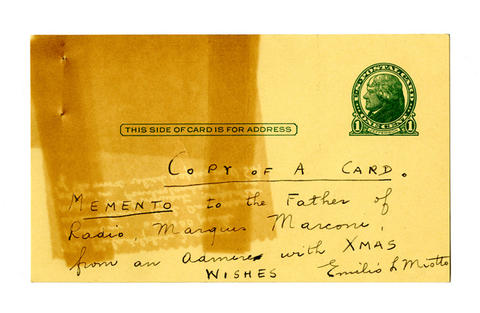 U.S. POSTAL CARD
1 ONE CENT 1
JEFFERSON
THIS SIDE OF CARD IS FOR ADDRESS
COPY OF A CARD.
MEMENTO to the Father of
Radio, Marquis Marconi,
from an admirer with XMAS
WISHES Emilio L Miotto